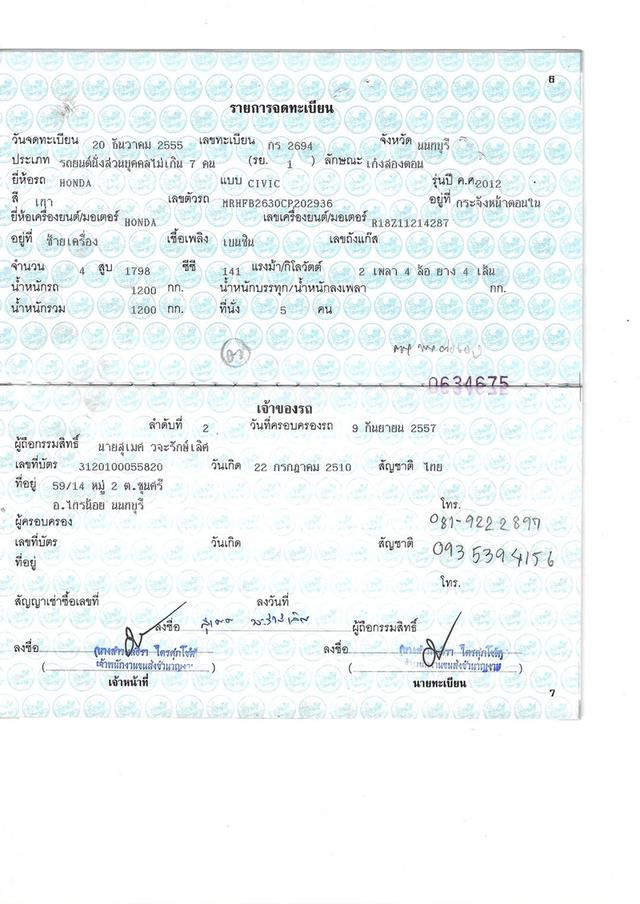 6
รายการจดทะเบียน
วันจดทะเบียน 20 ธันวาคม 2555 เลขทะเบียน กร 2694 จังหวัด นนทบุรี
ประเภท รถยนต์นั่งส่วนบุคคลไม่เกิน 7 คน (รย. 1 ) ลักษณะ เก๋งสองตอน
ยี่ห้อรถ HONDA แบบ CIVIC รุ่นปี ค.ศ.2012
สี เทา เลขตัวรถ MRHFB2630CP202936 อยู่ที่ กระจังหน้าตอนใน
ยี่ห้อเครื่องยนต์/มอเตอร์ HONDA เลขเครื่องยนต์/มอเตอร์ R18Z11214287
อยู่ที่ ซ้ายเครื่อง เชื้อเพลิง เบนซิน เลขถังแก๊ส
จำนวน 4 สูบ 1798 ซีซี 141 แรงม้า/กิโลวัตต์ 2 เพลา 4 ล้อ ยาง 4 เส้น
น้ำหนักรถ 1200 กก. น้ำหนักบรรทุก/น้ำหนักลงเพลา กก.
น้ำหนักรวม 1200 กก. ที่นั่ง 5 คน
0634675
เจ้าของรถ
ลำดับที่ 2 วันที่ครอบครองรถ 9 กันยายน 2557
ผู้ถือกรรมสิทธิ์ นายสุเมศ วจะรักษ์เลิศ
เลขที่บัตร 3120100055820 วันเกิด 22 กรกฎาคม 2510 สัญชาติ ไทย
ที่อยู่ 59/14 หมู่ 2 ต.ขุนศรี
อ.ไทรน้อย นนทบุรี โทร.
ผู้ครอบครอง 081-9222897
เลขที่บัตร วันเกิด สัญชาติ 0935394156
ที่อยู่
โทร.
สัญญาเช่าซื้อเลขที่ ลงวันที่
ลงชื่อ ผู้ถือกรรมสิทธิ์
ลงชื่อ ลงชื่อ
เจ้าพนักงานขนส่งชำนาญงาน เจ้าพนักงานขนส่งชำนาญงาน
เจ้าหน้าที่ นายทะเบียน
7